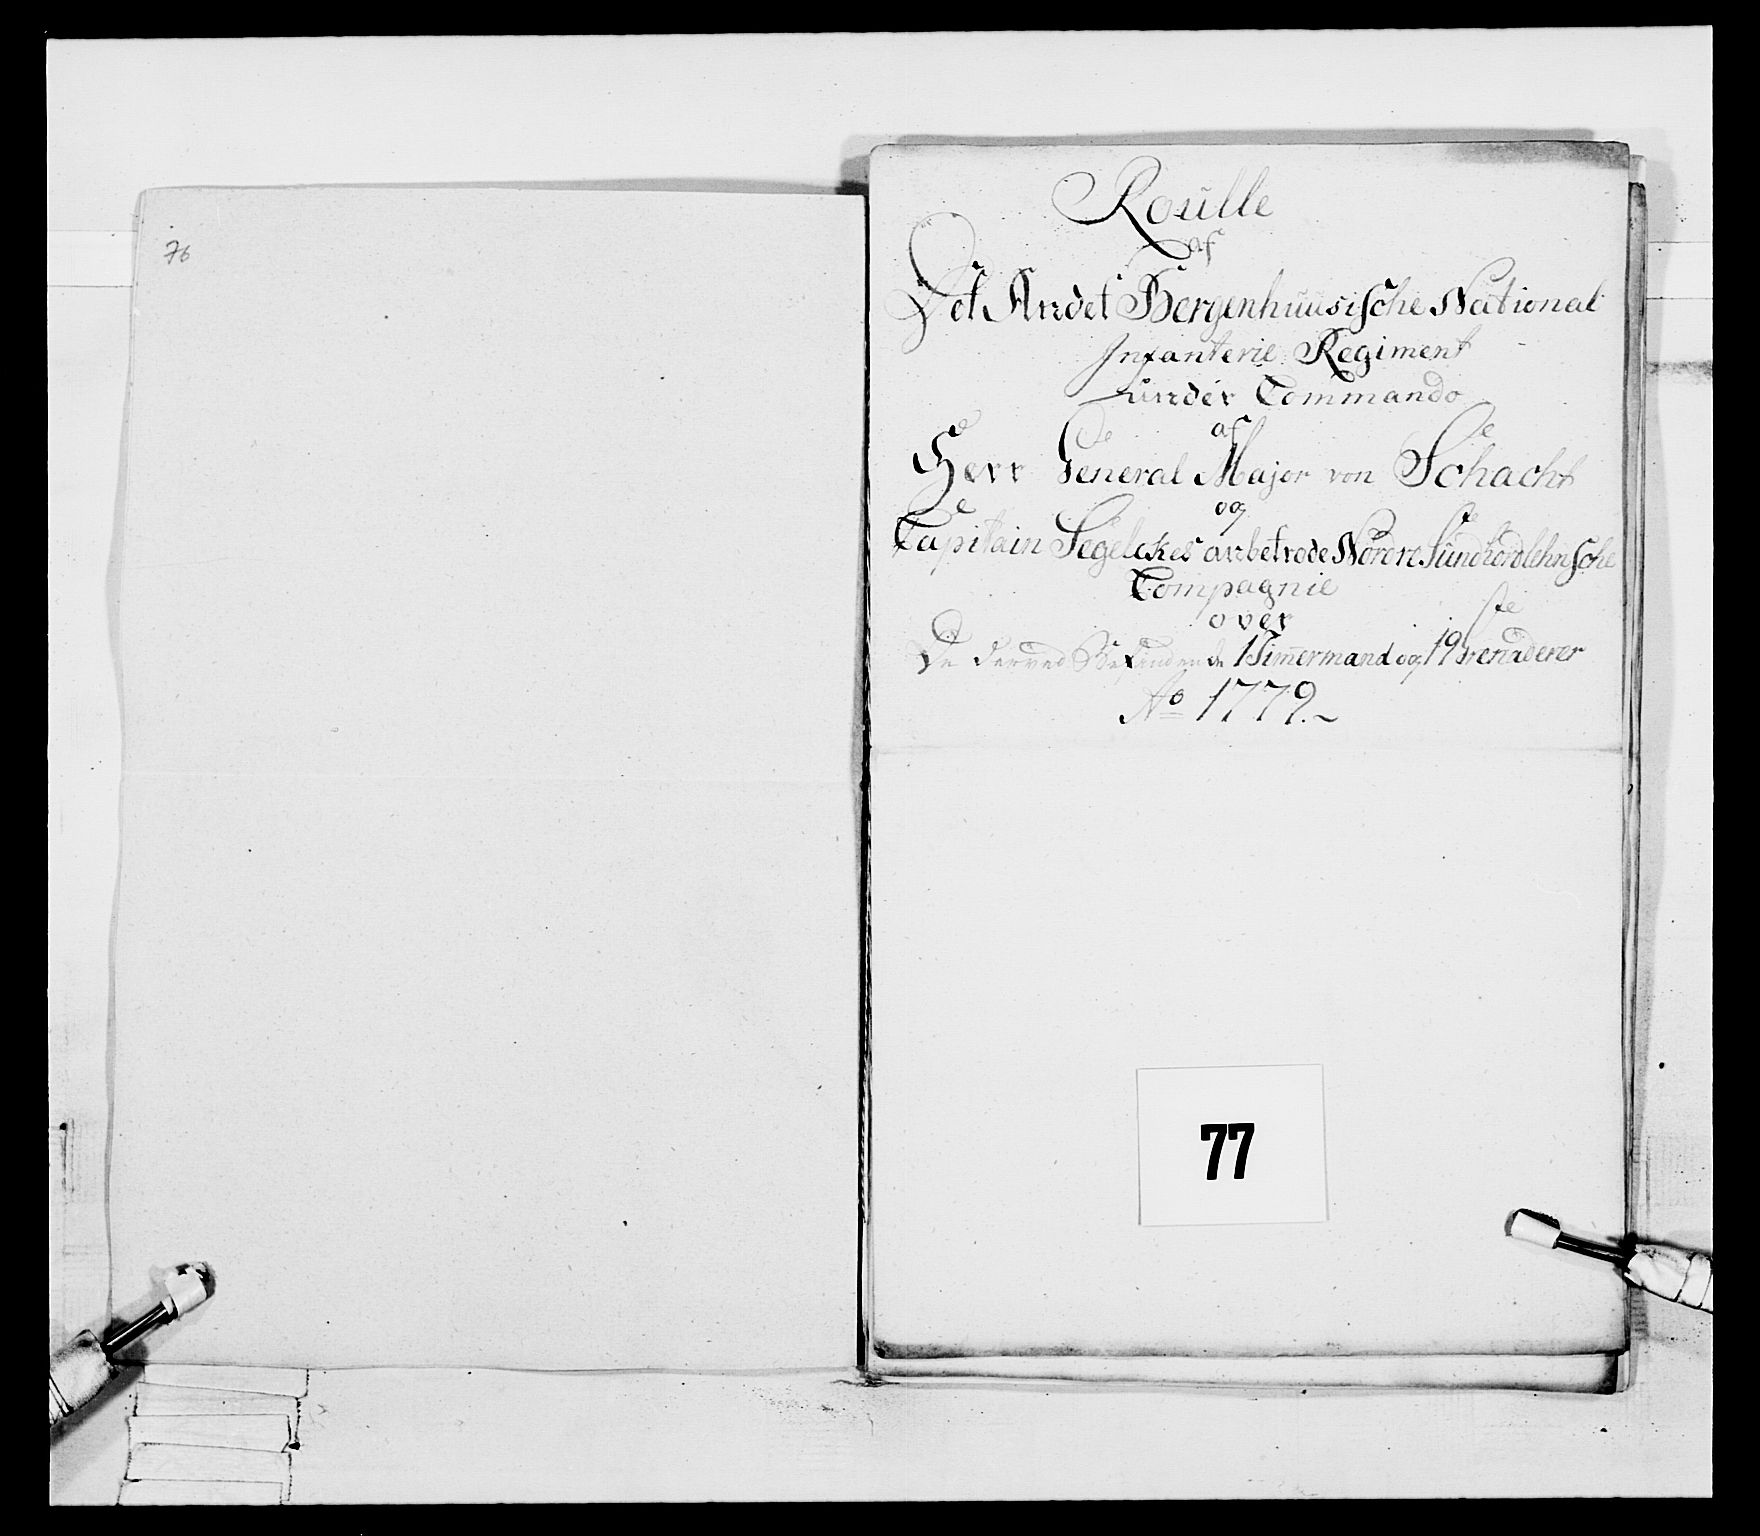 76
Roulle
af
Det Andet Bergenhuusische National
Infanterie Regiment
under Commando
af
Herr General Major von Schacht
og
Capitain Segelckes anbetrode Nordre Sundhordlehnsche
Compagnie
over
De derved Befindende 1 Timermand og 19 Grenaderer
Ao 1779.~
77